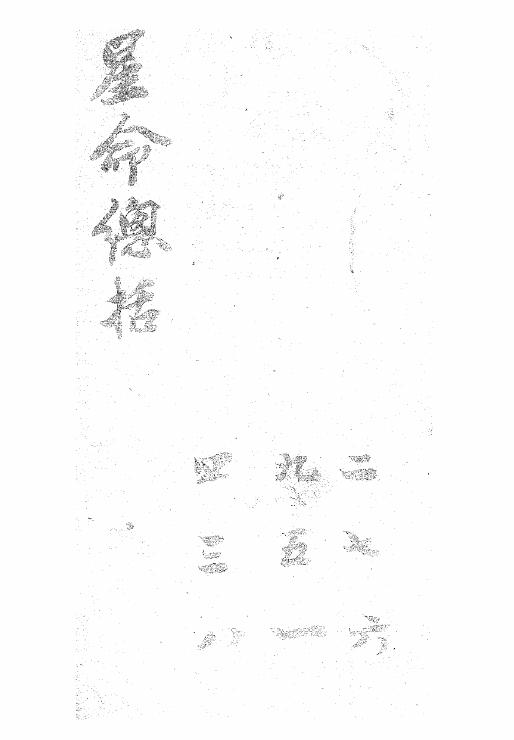 星命總括
二七六
九五一
四三八